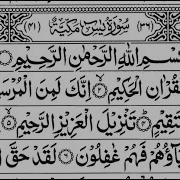 (٣٦) سُورَةُ يٰسٓ مَكِّيَّةٌ (٤١)
بِسْمِ اللّٰهِ الرَّحْمٰنِ الرَّحِيْمِ
الْقُرْاٰنِ الْحَكِيْمِ ۝٢ اِنَّكَ لَمِنَ الْمُرْسَ
تَقِيْمٍ ۝٤ تَنْزِيْلَ الْعَزِيْزِ الرَّحِيْمِ ۝٥
بَآؤُهُمْ فَهُمْ غٰفِلُوْنَ ۝٦ لَقَدْ حَقَّ